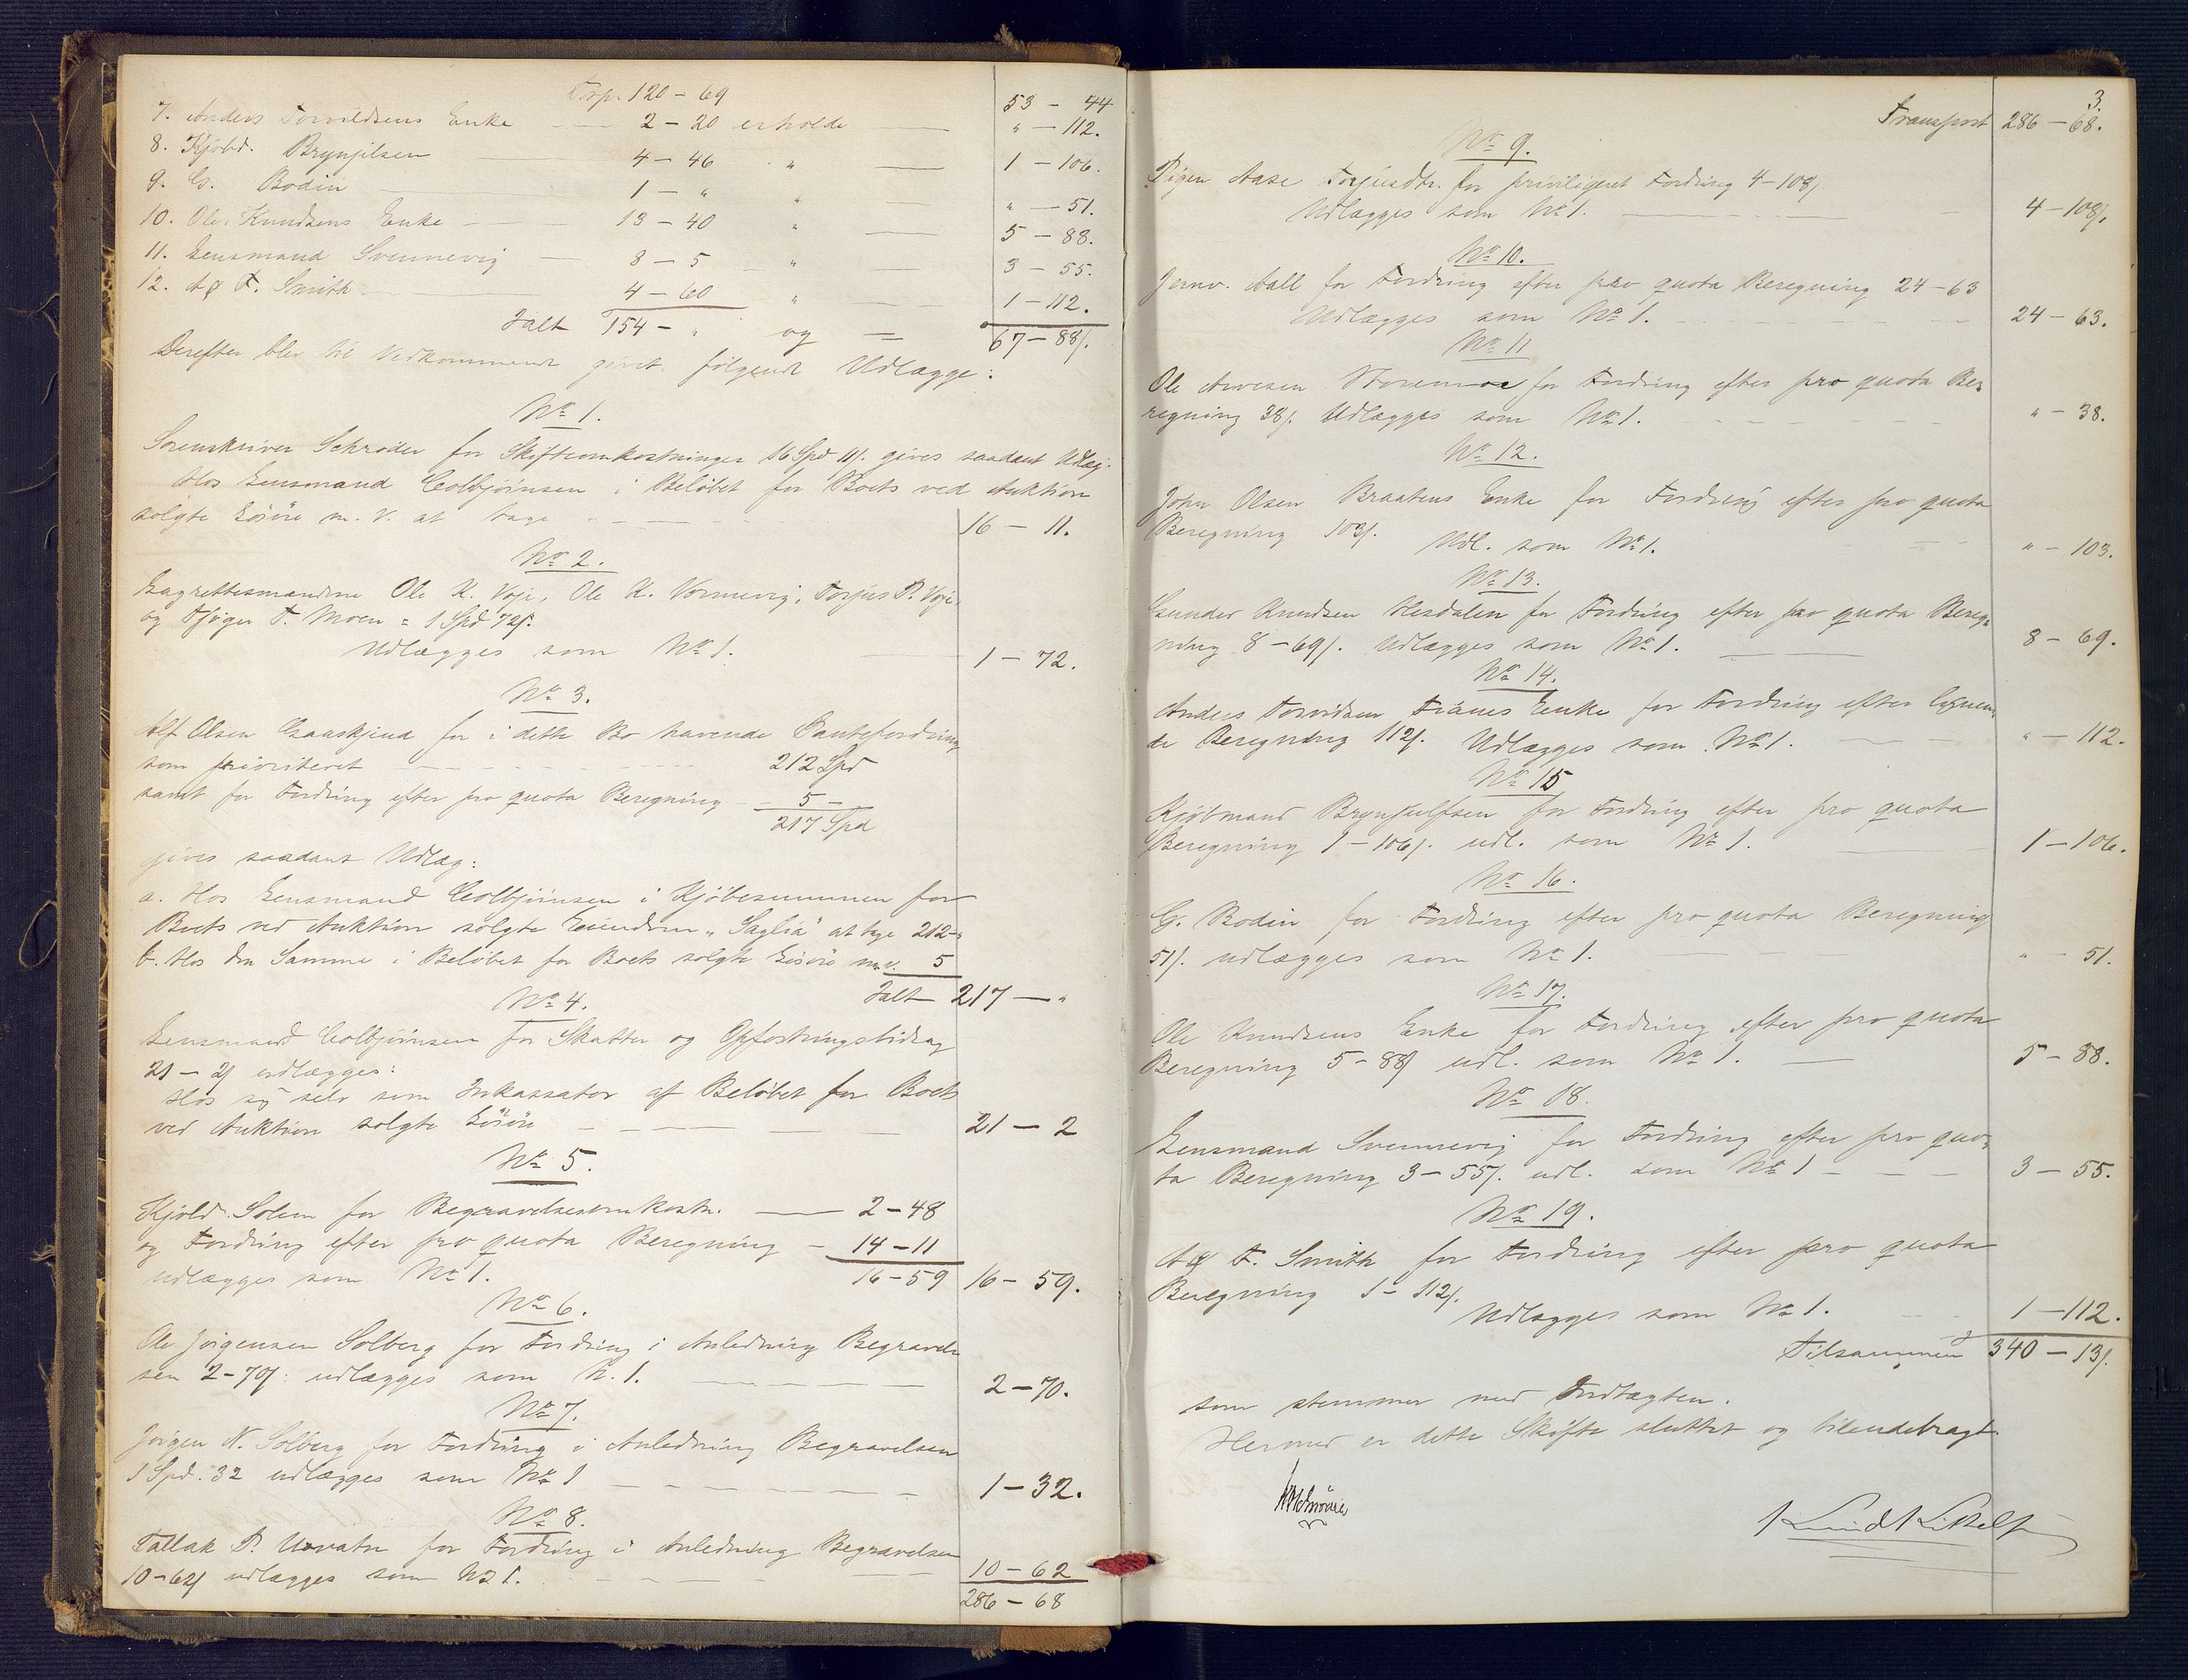 Trsp. 120 - 69 53 - 44
7. Anders Torvildsens Enke 2 - 20 erholde " - 112.
8. Kjøbd. Brynjilsen 4 - 46 " 1 - 106.
9. G. Bodin 1 - " " " - 51.
10. Ole Knudsens Enke 13 - 40 " 5 - 88.
11. Lensmand Svennevig 8 - 5 " 3 - 55.
12. A & F. Smith 4 - 60 " 1 - 112.
Ialt 154 - " og 67 - 88/.
Derefter blev til Vedkommende givet følgende Udlægge:
No 1.
Sorenskriver Schrøder for Skifteomkostninger 16 Spd 11/. gives saadant Udlæg:
Hos Lensmand Colbjörnsen i Beløbet for Boets ved Auktion
solgte Løsøre m. v. at tage 16 - 11.
No 2.
Lagrettesmændene Ole K. Voje, Ole K. Vormevig, Torjus P. Voje,
og Tjöger T. Moen = 1 Spd 72/.
Udlægges som No 1. 1 - 72.
No 3.
Alf Olsen Gaaskjend for i dette Bo havende Pantefordring
som prioriteret 212 Spd
samt for Fordring efter pro quota Beregning 5 -
217 Spd
gives saadant Udlæg:
a. Hos Lensmand Colbjörnsen i Kjöbesummen for
Boets ved Auktion solgte Eiendom "Saglia" at tage 212-"
b. Hos den Samme i Beløbet for Boets solgte Løsøre m.v. 5
Ialt 217 - "
No 4.
Lensmand Colbjörnsen for Skatter og Opfostringsbidrag
21 - 2/ udlægges:
Hos sig selv som Inkassator af Beløbet for Boets
ved Auktion solgte Løsøre 21 - 2
No 5.
Kjøbd. Solem for Begravelsesomkostn. 2 - 48
og Fordring efter pro quota Beregning - 14 - 11
udlægges som No 1. 16 - 59 16 - 59.
No 6.
Ole Jørgensen Solberg for Fordring i Anledning Begravel-
sen 2-70/: udlægges som N. 1. 2 - 70.
No 7.
Jørgen N. Solberg for Fordring i Anledning Begravelsen
1 Spd. 32 udlægges som No 1 1 - 32.
No 8.
Tallak P. Urvatn for Fordring i Anledning Begravelsen
10-62/ udlægges som No 1. 10 - 62
286 - 68
3.
Transport 286 - 68.
No 9.
Pigen Aase Torjusdtr. for priviligeret Fordring 4-108/.
Udlægges som No 1. 4 - 108/.
No 10.
Jernv. Aall for Fordring efter pro quota Beregning 24-63
Udlægges som No 1. 24 - 63.
No 11
Ole Arvesen Storemoe for Fordring efter pro quota Be-
regning 38/. Udlægges som No 1. " - 38.
No 12.
John Olsen Braatens Enke for Fordring efter pro quota
Beregning 103/. Udl. som No 1. " - 103.
No 13.
Gunder Knudsen Hesdalen for Fordring efter pro quota Bereg-
ning 8-69/. Udlægges som No 1. 8 - 69.
No 14.
Anders Torvidsen Tiånes Enke for Fordring efter lignen-
de Beregning 112/. Udlægges som No 1. " - 112.
No 15
Kjöbmand Brynjulfsen for Fordring efter pro quota
Beregning 1-106/. udl. som No 1. 1 - 106.
No 16.
G. Bodin for Fordring efter pro quota Beregning
51/. udlægges som No 1. " - 51.
No 17.
Ole Knudsens Enke for Fordring efter pro quota
Beregning 5-88/ udl. som No 1. 5 - 88.
No 18.
Lensmand Svennevig for Fordring efter pro quo-
ta Beregning 3-55/. udl. som No 1 3 - 55.
No 19.
A & F. Smith for Fordring efter pro quota
Beregning 1-112/.
Udlægges som No 1. 1 - 112.
Tilsammen 340 - 13/.
som stemmer med Indtægten.
Hermed er dette Skifte sluttet og tilendebragt